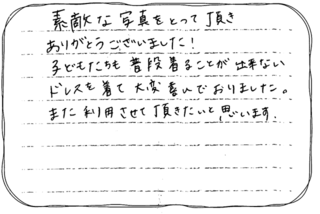 素敵な写真をとって頂き
ありがとうございました!
子どもたちも普段着ることが出来ない
ドレスを着て大変喜んでおりました。
また利用させて頂きたいと思います.